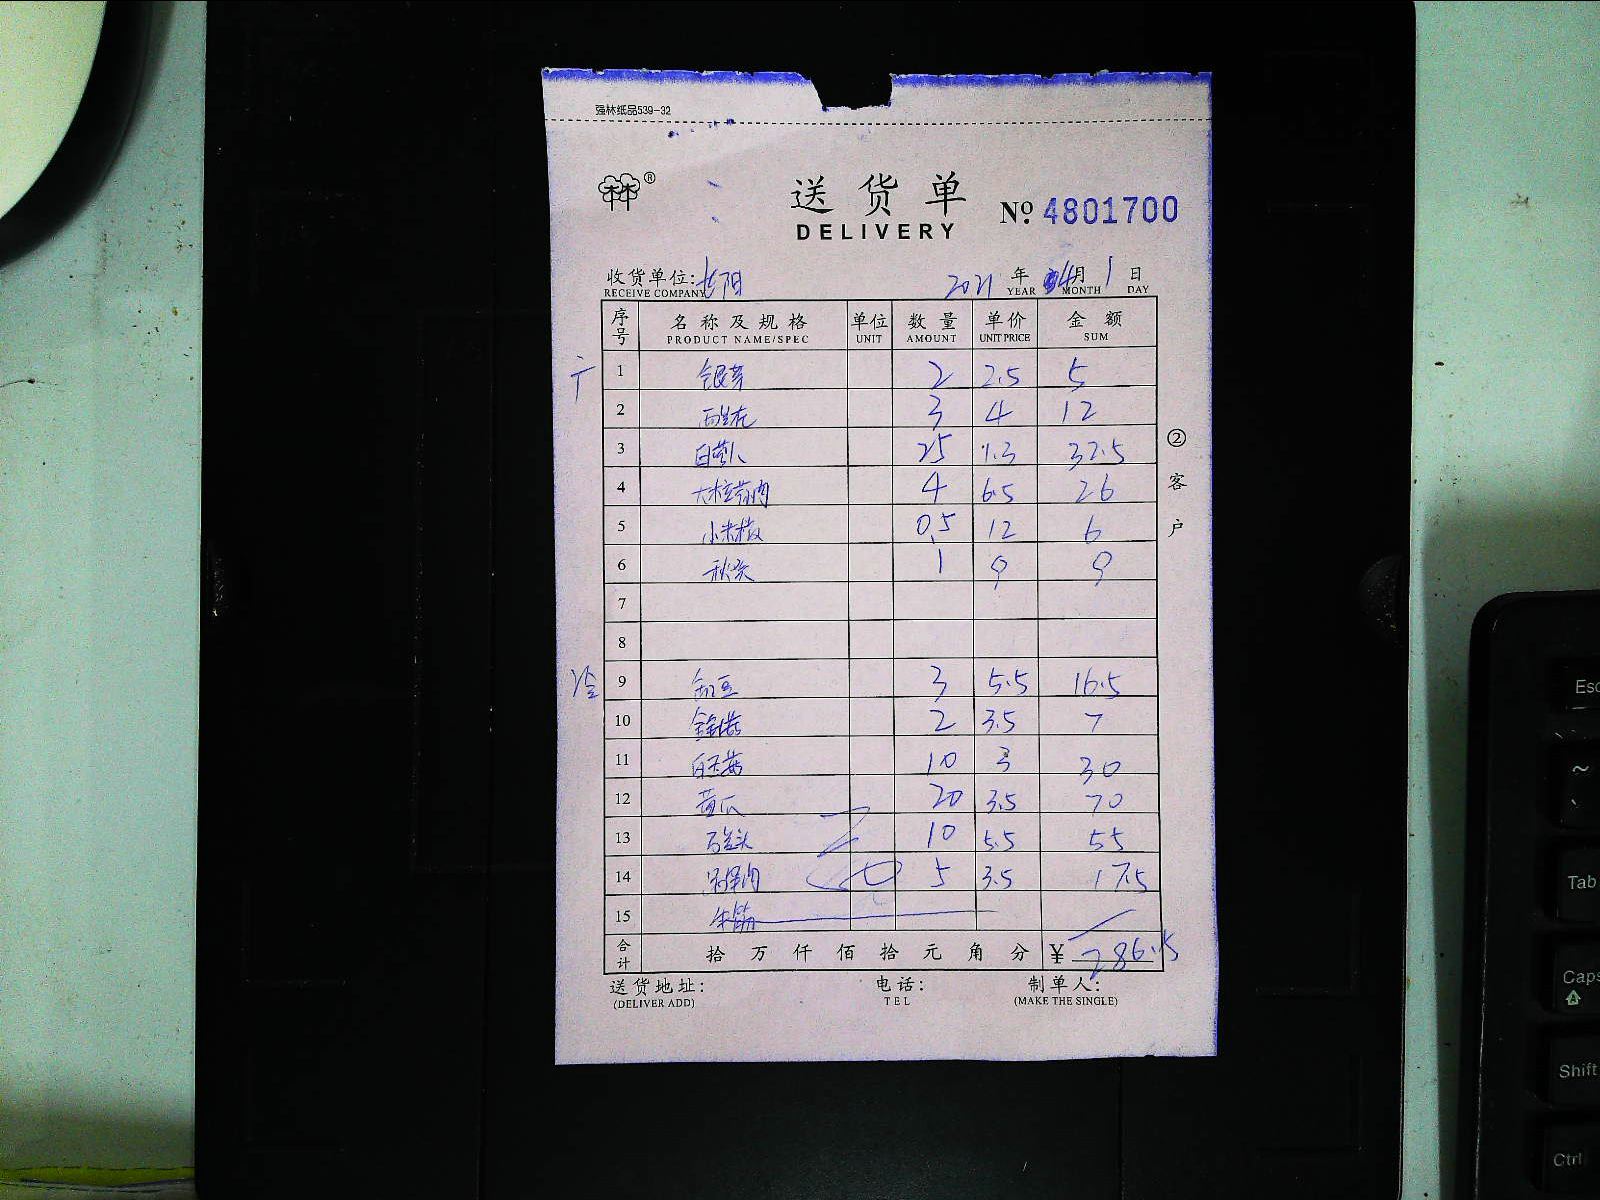 强林纸品539-32
®
送货单
DELIVERY
№ 4801700
收货单位: 长阳 2021 年 4月 1 日
RECEIVE COMPANY YEAR MONTH DAY
序号 名称及规格 单位 数量 单价 金额
PRODUCT NAME/SPEC UNIT AMOUNT UNIT PRICE SUM
1 银芽 2 2.5 5
2 西兰花 3 4 12
3 25 1.3 32.5
4 4 6.5 26
5 小米椒 0.5 12 6
6 秋葵 1 9 9
7
8
冷 9 3 5.5 16.5
10 2 3.5 7
11 白玉菇 10 3 30
12 黄瓜 20 3.5 70
13 10 5.5 55
14 5 3.5 17.5
15 牛筋
合计 拾 万 仟 佰 拾 元 角 分 ¥ 286.5
②客户
送货地址: 电话: 制单人:
(DELIVER ADD) TEL (MAKE THE SINGLE)
Esc
~
Tab
Caps
Shift
Ctrl